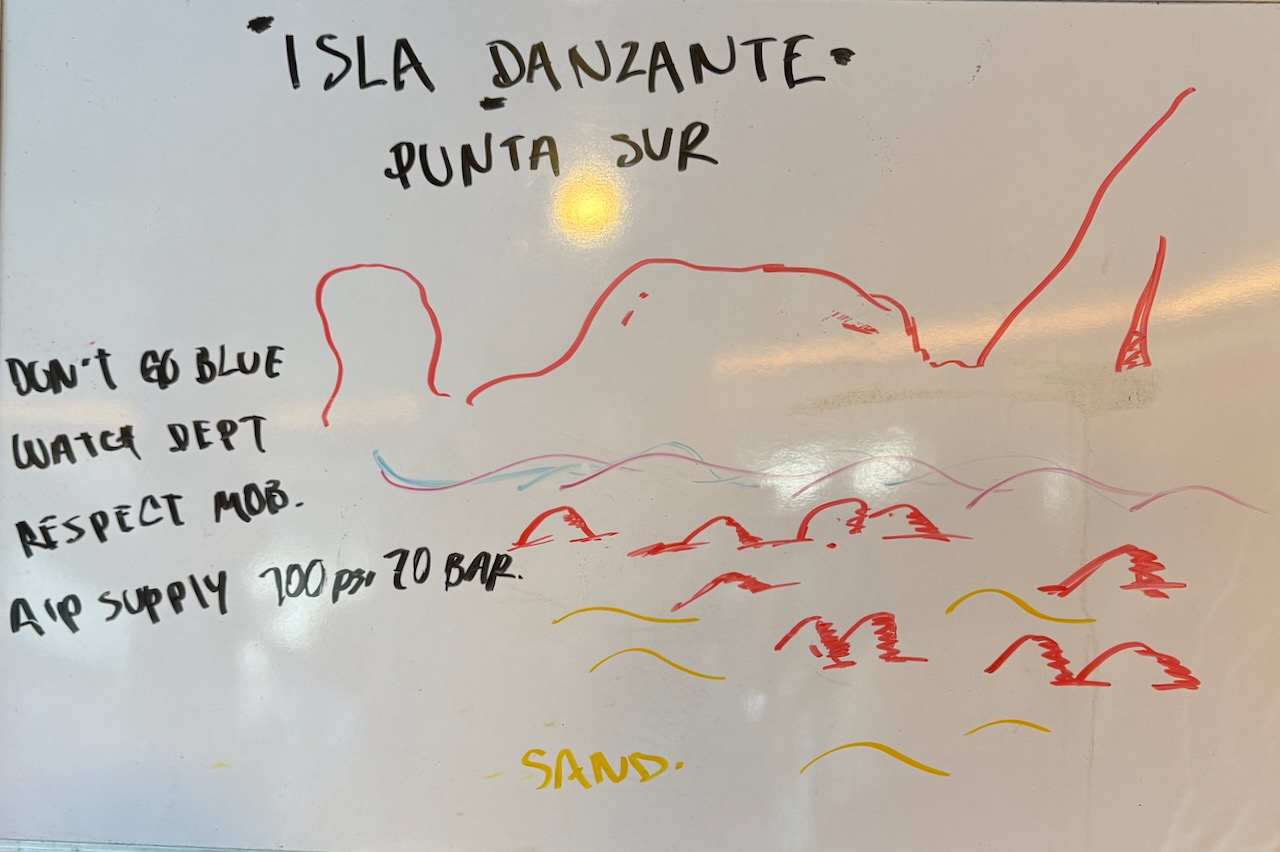 ISLA DANZANTE
PUNTA SUR
DON'T GO BLUE
WATCH DEPT
RESPECT MOB.
AIR SUPPLY 700 psi 70 BAR.
SAND.